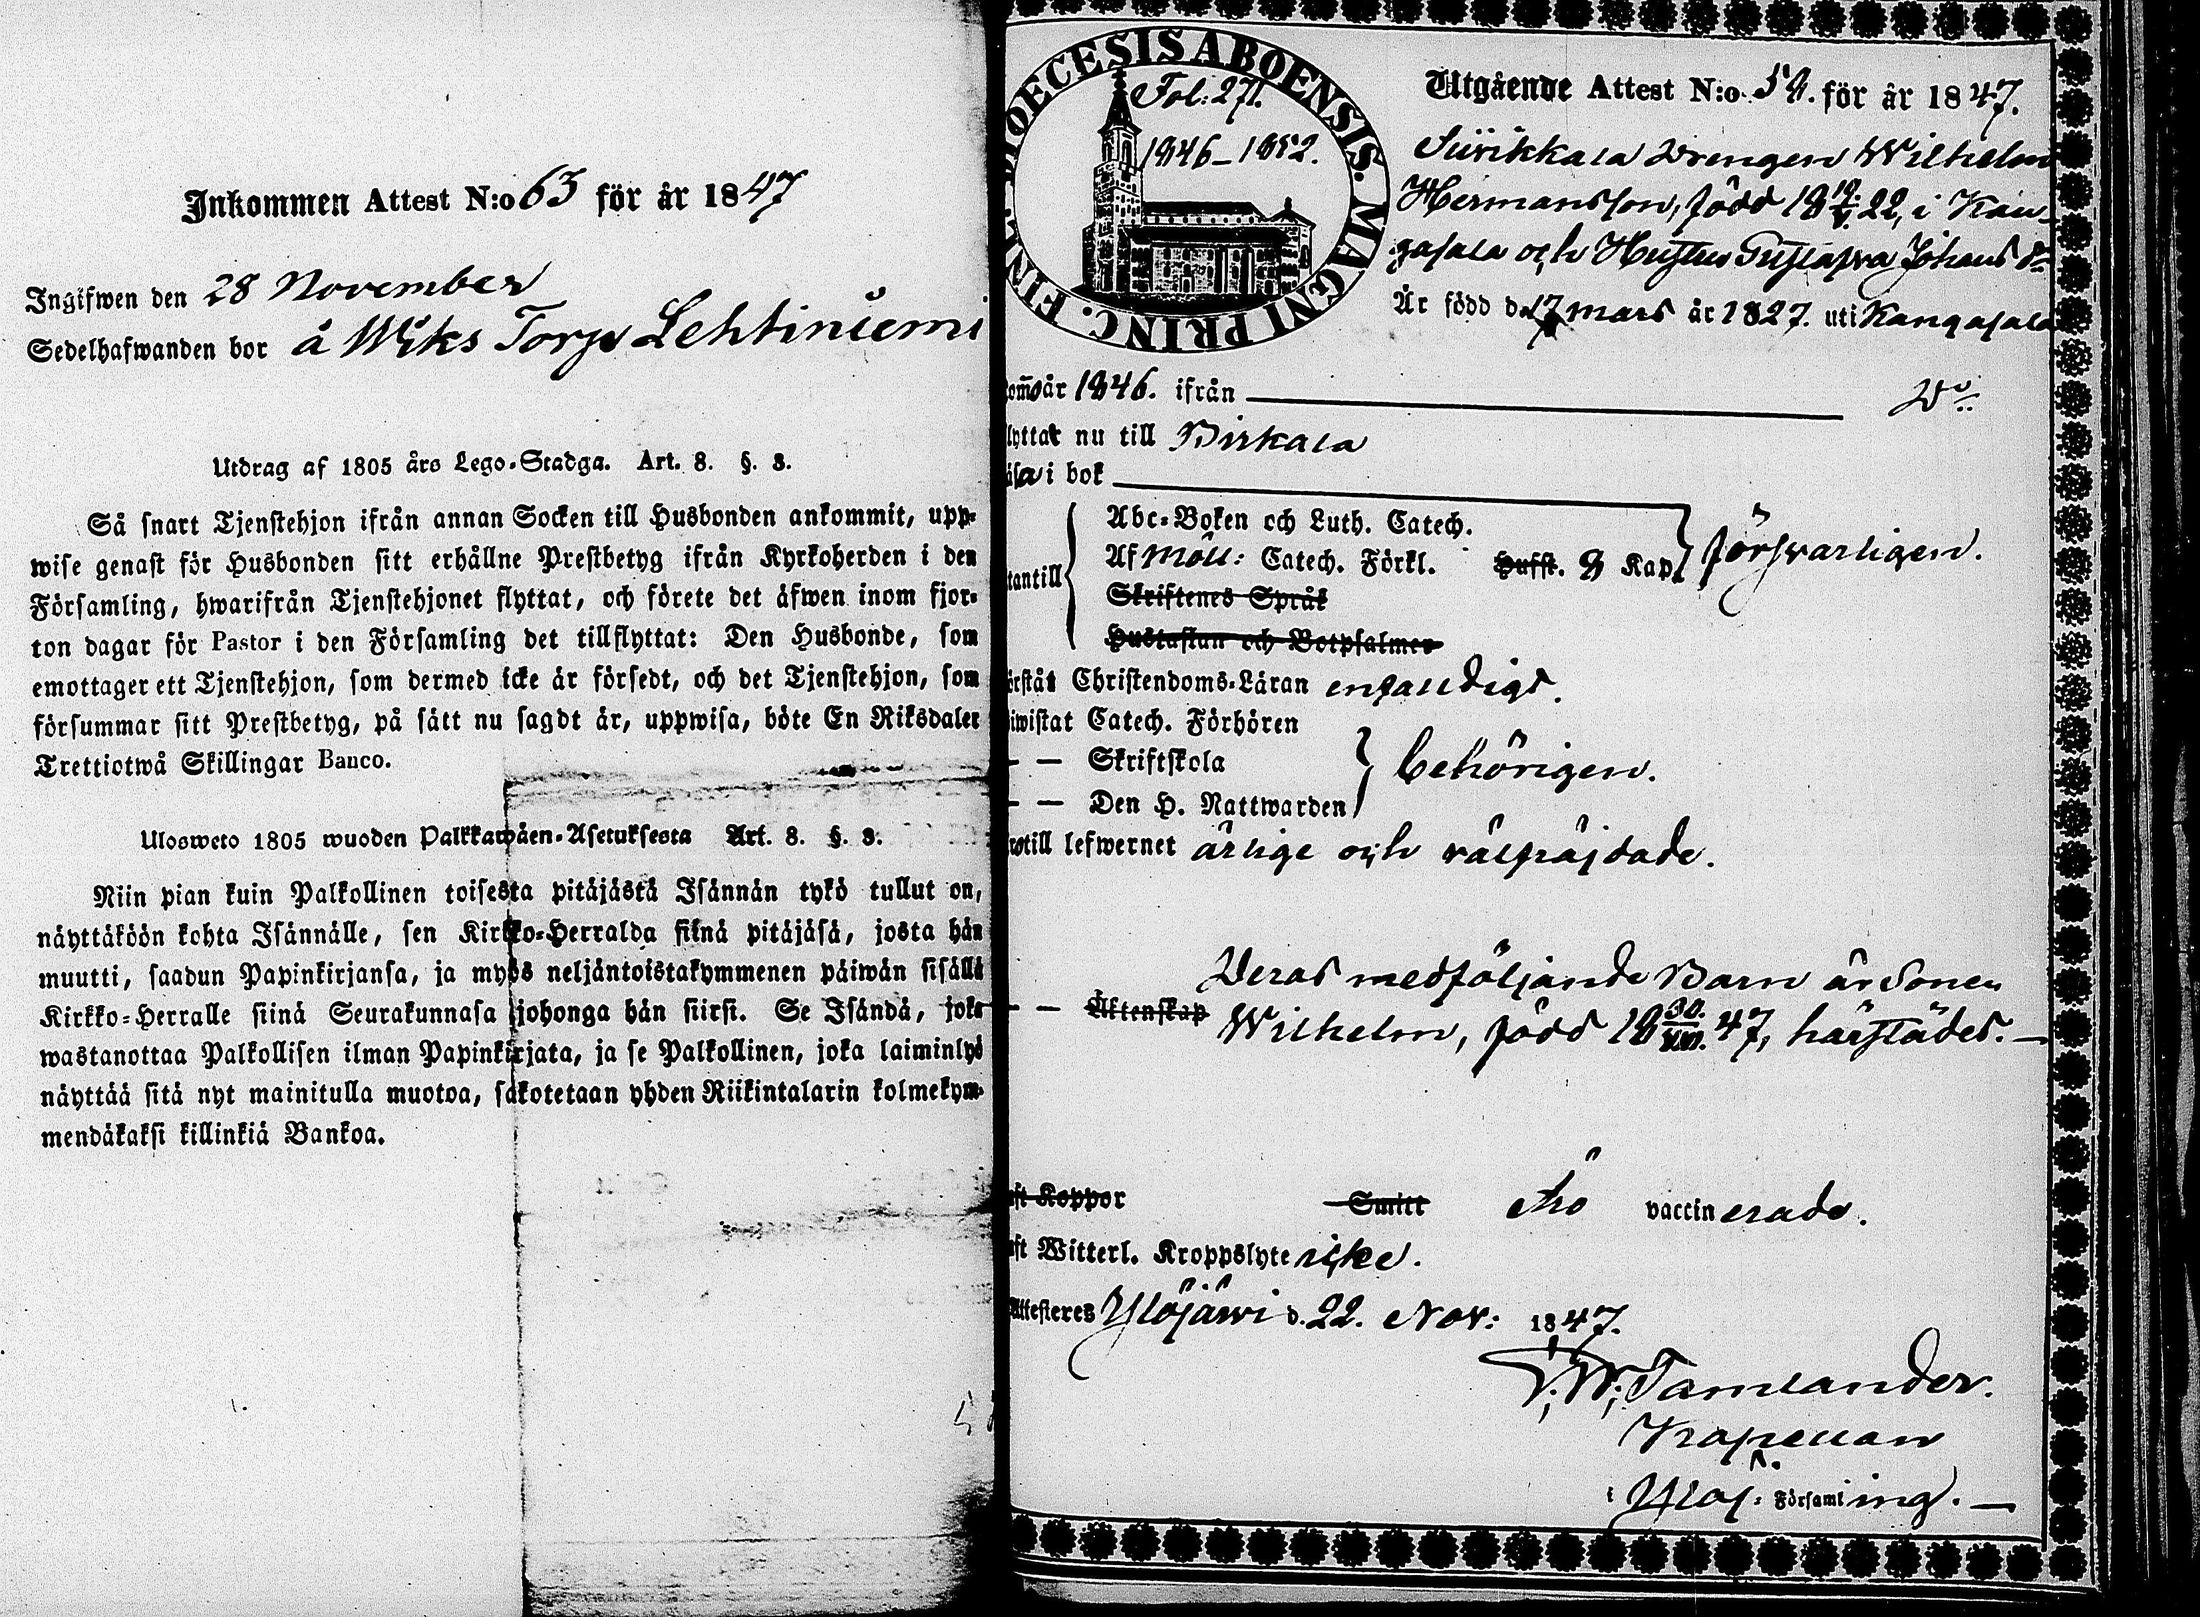 Inkommen Attest N:o 63 för år 1847
Ingifwen den 28 November
Sedelhafwanden bor å Wiks Torp Lehtiniemi
Utdrag af 1805 års Lego-Stadga. Art. 8. §. 3.
Så snart Tjenstehjon ifrån annan Socken till Husbonden ankommit, upp-
wise genast för Husbonden sitt erhållne Prestbetyg ifrån Kyrkoherden i den
Församling, hwarifrån Tjenstehjonet flyttat, och förete det äfwen inom fjor-
ton dagar för Pastor i den Församling det tillflyttat: Den Husbonde, som
emottager ett Tjenstehjon, som dermed icke är försedt, och det Tjenstehjon, som
försummar sitt Prestbetyg, på sätt nu sagdt är, uppwisa, böte En Riksdaler
Trettiotwå Skillingar Banco.
Ulosweto 1805 wuoden Palkkawäen-Asetuksesta Art. 8. §. 3.
Niin pian kuin Palkollinen toisesta pitäjästä Isännän tykö tullut on,
näyttäköön kohta Isännälle, sen Kirkko-Herralda siinä pitäjäsä, josta hän
muutti, saadun Papinkirjansa, ja myös neljäntoistakymmenen päiwän sisällä
Kirkko-Herralle siinä Seurakunnasa johonga hän siirsi. Se Isändä, joka
wastanottaa Palkollisen ilman Papinkirjata, ja se Palkollinen, joka laiminlyö
näyttää sitä nyt mainitulla muotoa, sakotetaan yhden Riikintalarin kolmekym-
mendäkaksi killinkiä Bankoa.
DIOECESIS ABOENSIS. MAGNI PRINC. FINL.
Fol: 271.
1846-1852.
Utgående Attest N:o 54. för år 1847.
Siirikkala Drengen Wilhelm
Hermansson, född 18 22, i Kan-
gasala och Hustru Gustafva Johansdr
År född d. 17 mars år 1827. uti Kangasala
kom år 1846. ifrån Do
flyttat nu till Birkala
Läsa i bok
Abc-Boken och Luth. Catech.
utantill Af Möll: Catech. Förkl. Hufst. 8 Kap försvarligen.
Skriftenes Språk
Hustaflan och Botpsalmer
förstått Christendoms-Läran enfaldigt.
Biwistat Catech. Förhören
— — Skriftskola behörigen.
— — Den H. Nattwarden
Hittills lefwernet ärlige och välfräjdade.
Deras medföljande Barn är Sonen
— — Äktenskap Wilhelm, född 18 30/VIII. 47, härstädes. —
Haft Koppor Smitt Äro vaccinerade.
Haft Witterl. Kroppslyte icke.
Attesteres Ylöjäwi d. 22. Nov: 1847.
Tamlander.
Kapellan
i Ylöj: Församling. —